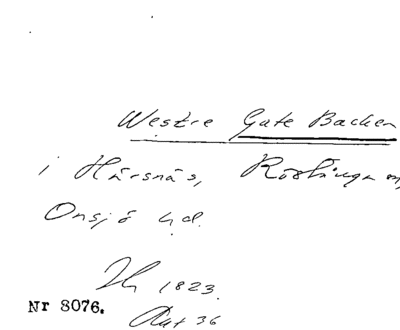 Westre Gate Backen
i Härsnäs, Röstånga
Onsjö hd.
1823.
Nr 8076.
36